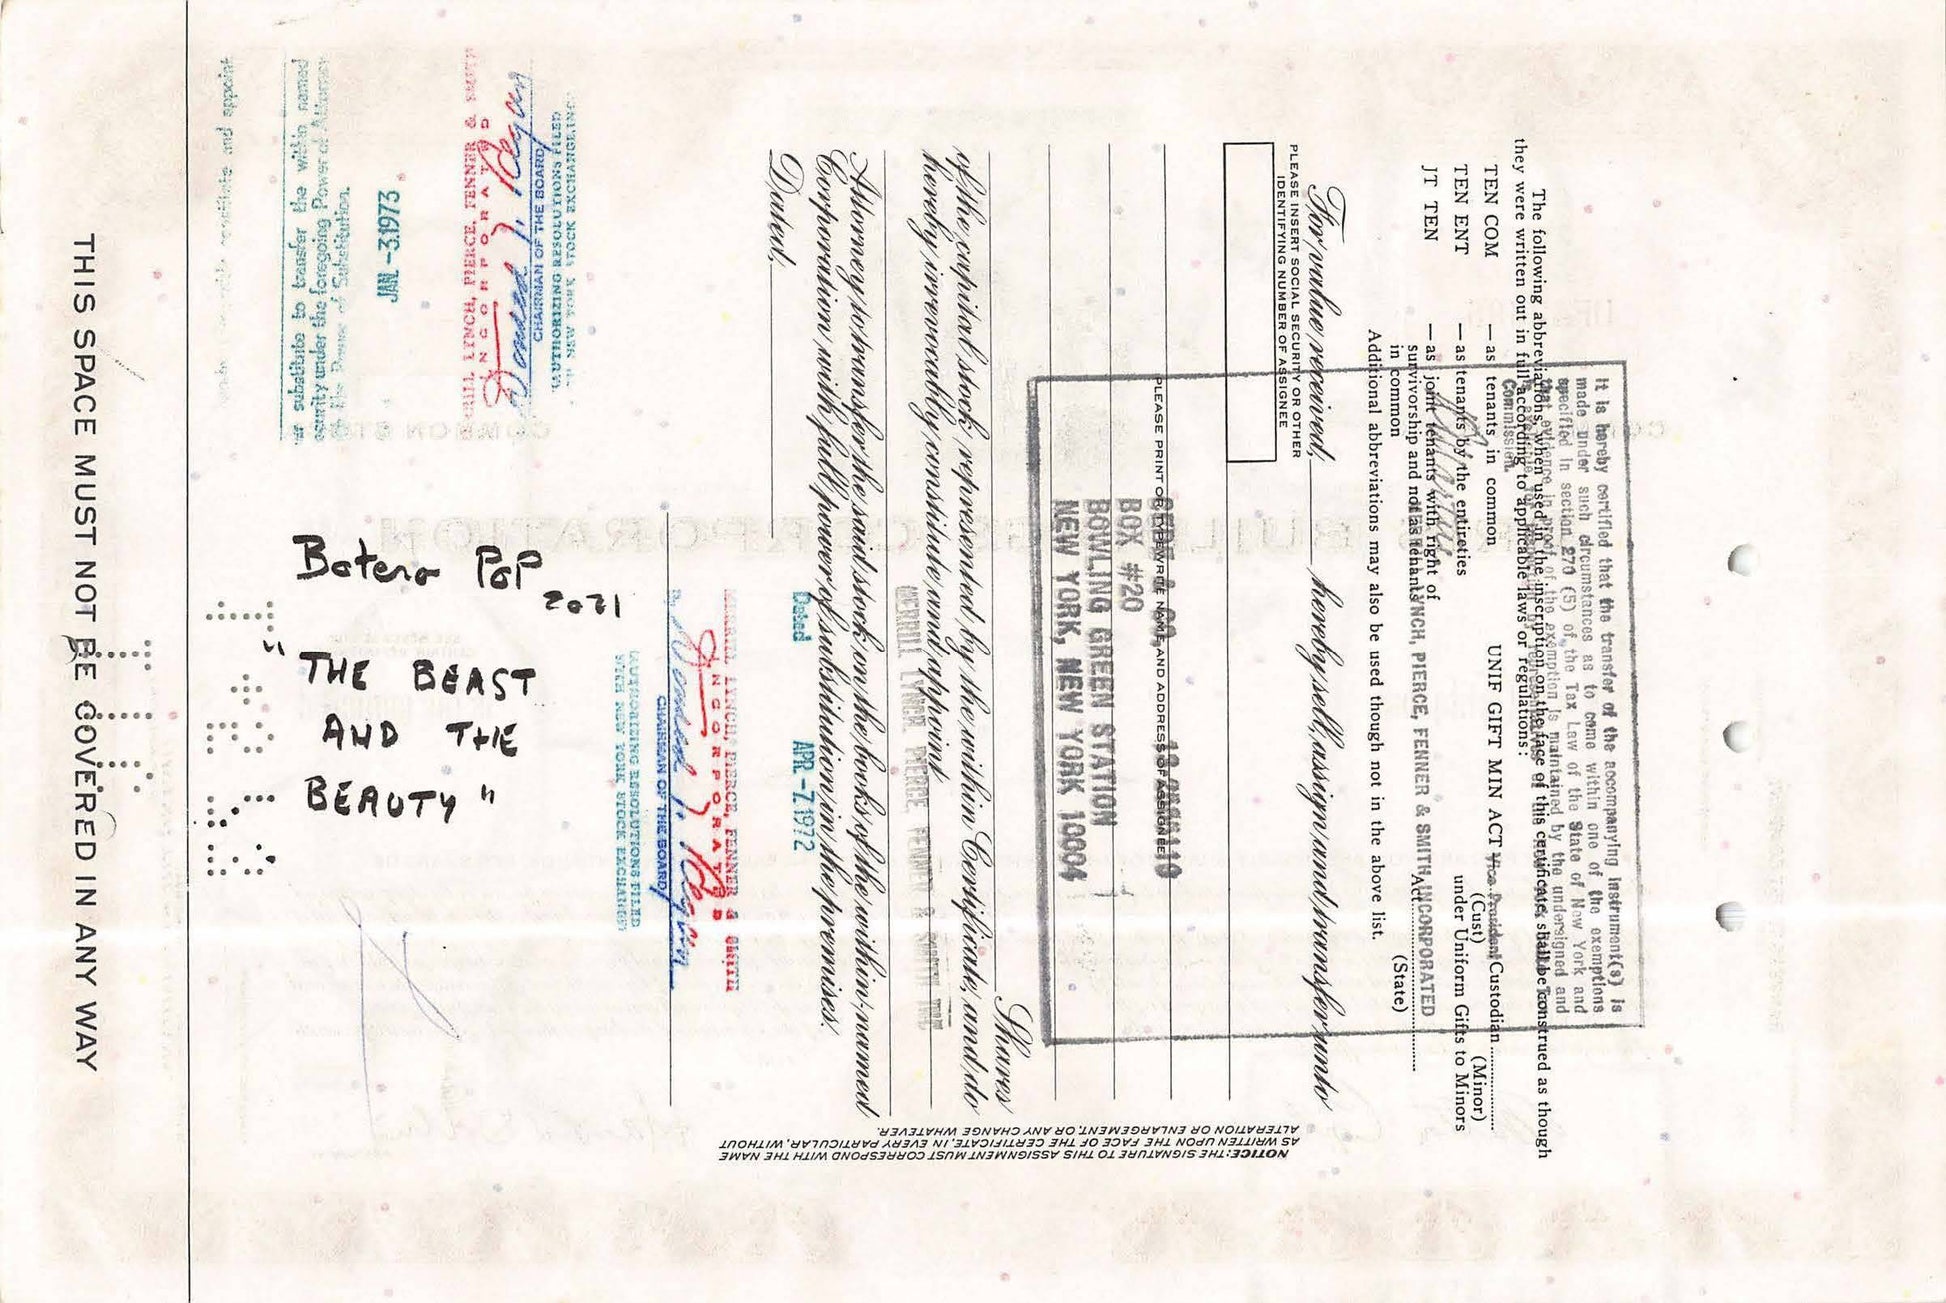 The following abbreviations, when used in the inscription on the face of this certificate, shall be construed as though
they were written out in full according to applicable laws or regulations:
TEN COM — as tenants in common
TEN ENT — as tenants by the entireties
JT TEN — as joint tenants with right of
survivorship and not as tenants
in common
UNIF GIFT MIN ACT
Custodian
(Cust) (Minor)
under Uniform Gifts to Minors
Act
(State)
Additional abbreviations may also be used though not in the above list.
It is hereby certified that the transfer of the accompanying instrument(s) is
made under such circumstances as to come within one of the exemptions
specified in section 270 (5) of the Tax Law of the State of New York and
that evidence in proof of the exemption is maintained by the undersigned and
Commission.
LYNCH, PIERCE, FENNER & SMITH INCORPORATED
Vice President
For value received, hereby sell, assign and transfer unto
PLEASE INSERT SOCIAL SECURITY OR OTHER
IDENTIFYING NUMBER OF ASSIGNEE
PLEASE PRINT OR TYPEWRITE NAME, AND ADDRESS OF ASSIGNEE
BOX #20
BOWLING GREEN STATION
NEW YORK, NEW YORK 10004
Shares
of the capital stock represented by the within Certificate, and do
hereby irrevocably constitute and appoint
MERRILL LYNCH, PIERCE, FENNER & SMITH INC
Attorney to transfer the said stock on the books of the within-named
Corporation with full power of substitution in the premises.
Dated,
Dated APR -7 1972
MERRILL LYNCH, PIERCE, FENNER & SMITH
INCORPORATED
Donald T. Regan
CHAIRMAN OF THE BOARD
AUTHORIZING RESOLUTIONS FILED
WITH NEW YORK STOCK EXCHANGE
NOTICE: THE SIGNATURE TO THIS ASSIGNMENT MUST CORRESPOND WITH THE NAME
AS WRITTEN UPON THE FACE OF THE CERTIFICATE, IN EVERY PARTICULAR, WITHOUT
ALTERATION OR ENLARGEMENT, OR ANY CHANGE WHATEVER.
AUTHORIZING RESOLUTIONS FILED
NEW YORK STOCK EXCHANGE
MERRILL LYNCH, PIERCE, FENNER & SMITH
INCORPORATED
Donald T. Regan
CHAIRMAN OF THE BOARD
JAN -3 1973
substitute to transfer the within named
under the foregoing Power of Attorney
of Substitution.
and appoint
Botero PoP
2021
"THE BEAST
AND THE
BEAUTY"
THIS SPACE MUST NOT BE COVERED IN ANY WAY